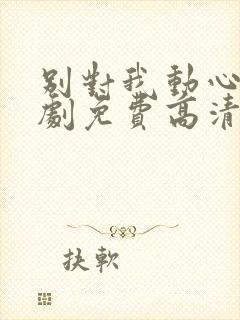 別對我動心
劇免費高清
抉軟